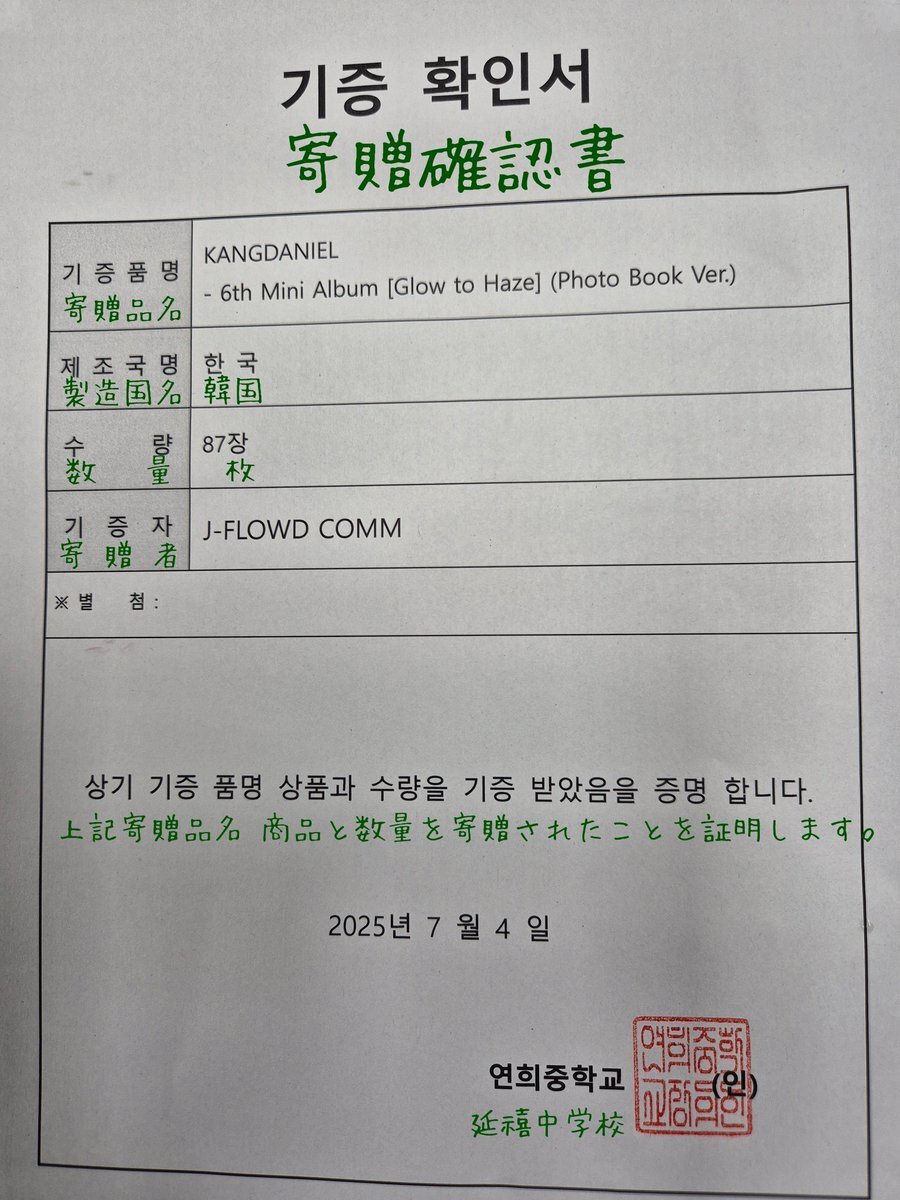 기증 확인서
寄贈確認書
기 증 품 명
寄贈品名
KANGDANIEL
- 6th Mini Album [Glow to Haze] (Photo Book Ver.)
제 조 국 명
製造国名
한 국
韓国
수 량
数 量
87장
枚
기 증 자
寄 贈 者
J-FLOWD COMM
※ 별 첨 :
상기 기증 품명 상품과 수량을 기증 받았음을 증명 합니다.
上記寄贈品名 商品と数量を寄贈されたことを証明します。
2025년 7 월 4 일
연희중학교 (인)
延禧中学校